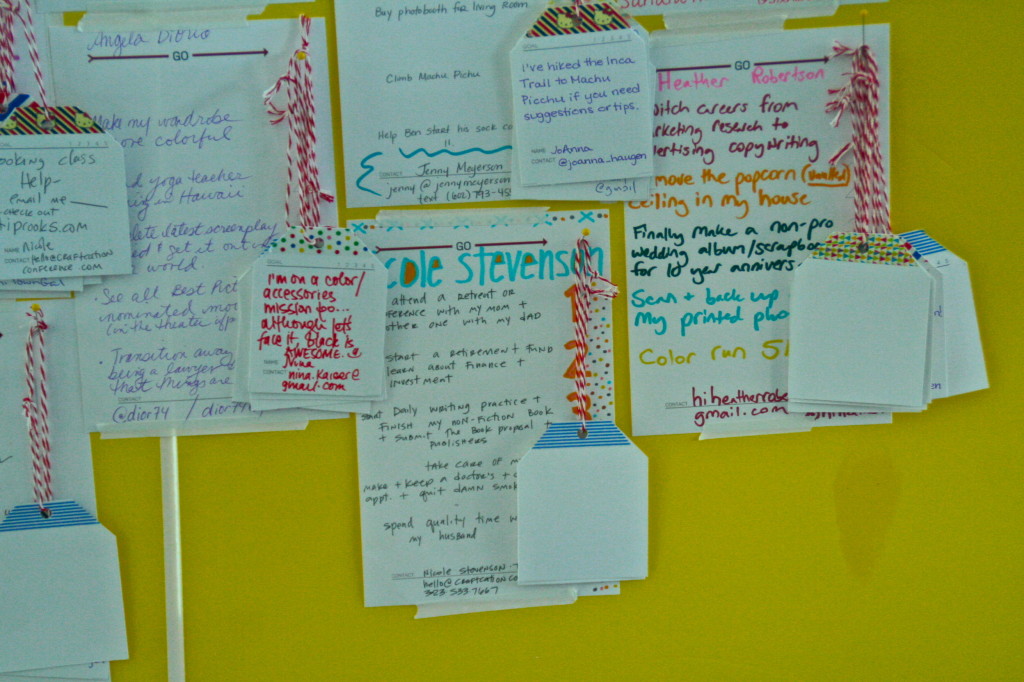 Angela Diorio
GO
make my wardrobe
more colorful
yoga teacher
in Hawaii
latest screenplay
& get it out
world.
· See all Best Pict
nominated mov
(in the theater
· Transition away
being a lawyer
that things are
CONTACT
@dior74 / dior74
GOAL 1 2 3 4 5
ooking class
Help-
email me
check out
tiprooks.com
NAME Nicole
CONTACT hello@craftcation
conference.com
Buy photobooth for living room
Climb Machu Pichu
Help Ben start his sock co
CONTACT Jenny Meyerson
jenny@jennymeyerson
text (602) 793-45
@gmail
GOAL 1 2 3 4 5
I've hiked the Inca
Trail to Machu
Picchu if you need
suggestions or tips.
NAME JoAnna
CONTACT @joanna_haugen
GO
Heather Robertson
witch careers from
arketing research to
vertising copywriting
move the popcorn (vaulted)
ceiling in my house
Finally make a non-pro
wedding album/scrapbo
for 10 year annivers
Scan + back up
my printed pho
Color run 5
CONTACT hi.heatherrobe
gmail.com
GOAL 1 2 3 4 5
I'm on a color/
accessories
mission too...
although let's
face it, black is
AWESOME.
NAME Nina
CONTACT nina.kaiser@
gmail.com
GO
cole Stevenson
attend a retreat or
ference with my mom +
other one with my dad
start a retirement fund
learn about finance +
investment
start Daily writing practice +
Finish my non-fiction Book
+ submit the Book proposal +
publishers
take care of m
make + keep a doctor's +
appt. + quit damn smok
spend quality time w
my husband
CONTACT Nicole Stevenson
hello@craftcation.co
323 533 7667
1
2
2
3